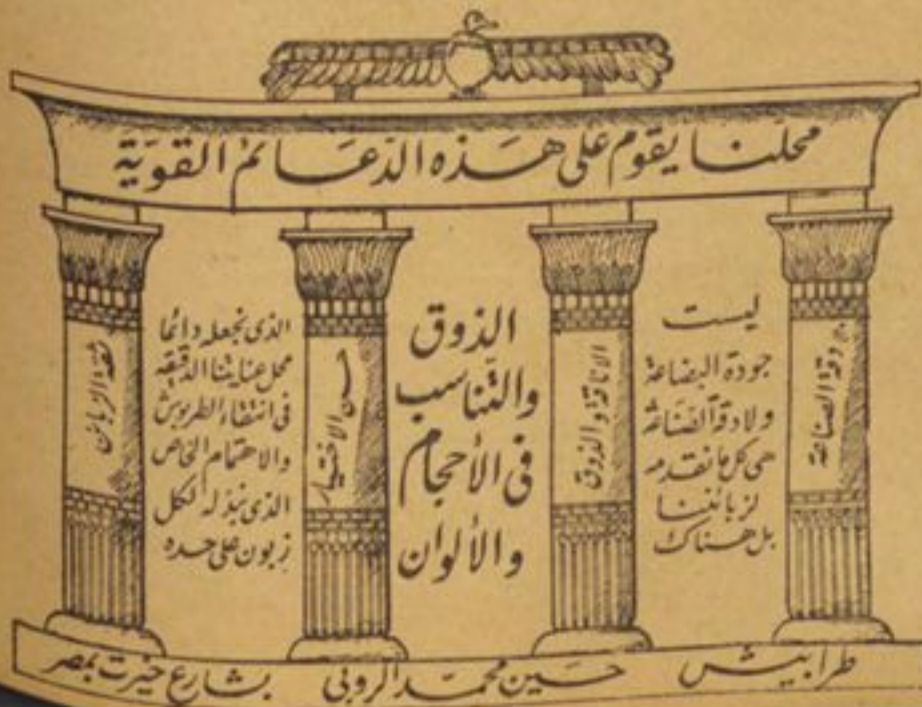 محلنا يقوم على هذه الدعائم القوية
دقة الصناعة
ليست
جودة البضاعة
ولادقة الصناعة
هى كل ما نقدمه
لزبائننا
بل هناك
الاناقة والذوق
الذوق
والتناسب
فى الأحجام
والألوان
حسن الاختيار
الذى نجعله دائما
محل عنايتنا الدقيقة
فى انتقاء الطربوش
والاهتمام الخاص
الذى نبذله لكل
زبون على حده
ثقة الزبائن
طرابيش حسين محمد الروبى بشارع خيرت بمصر